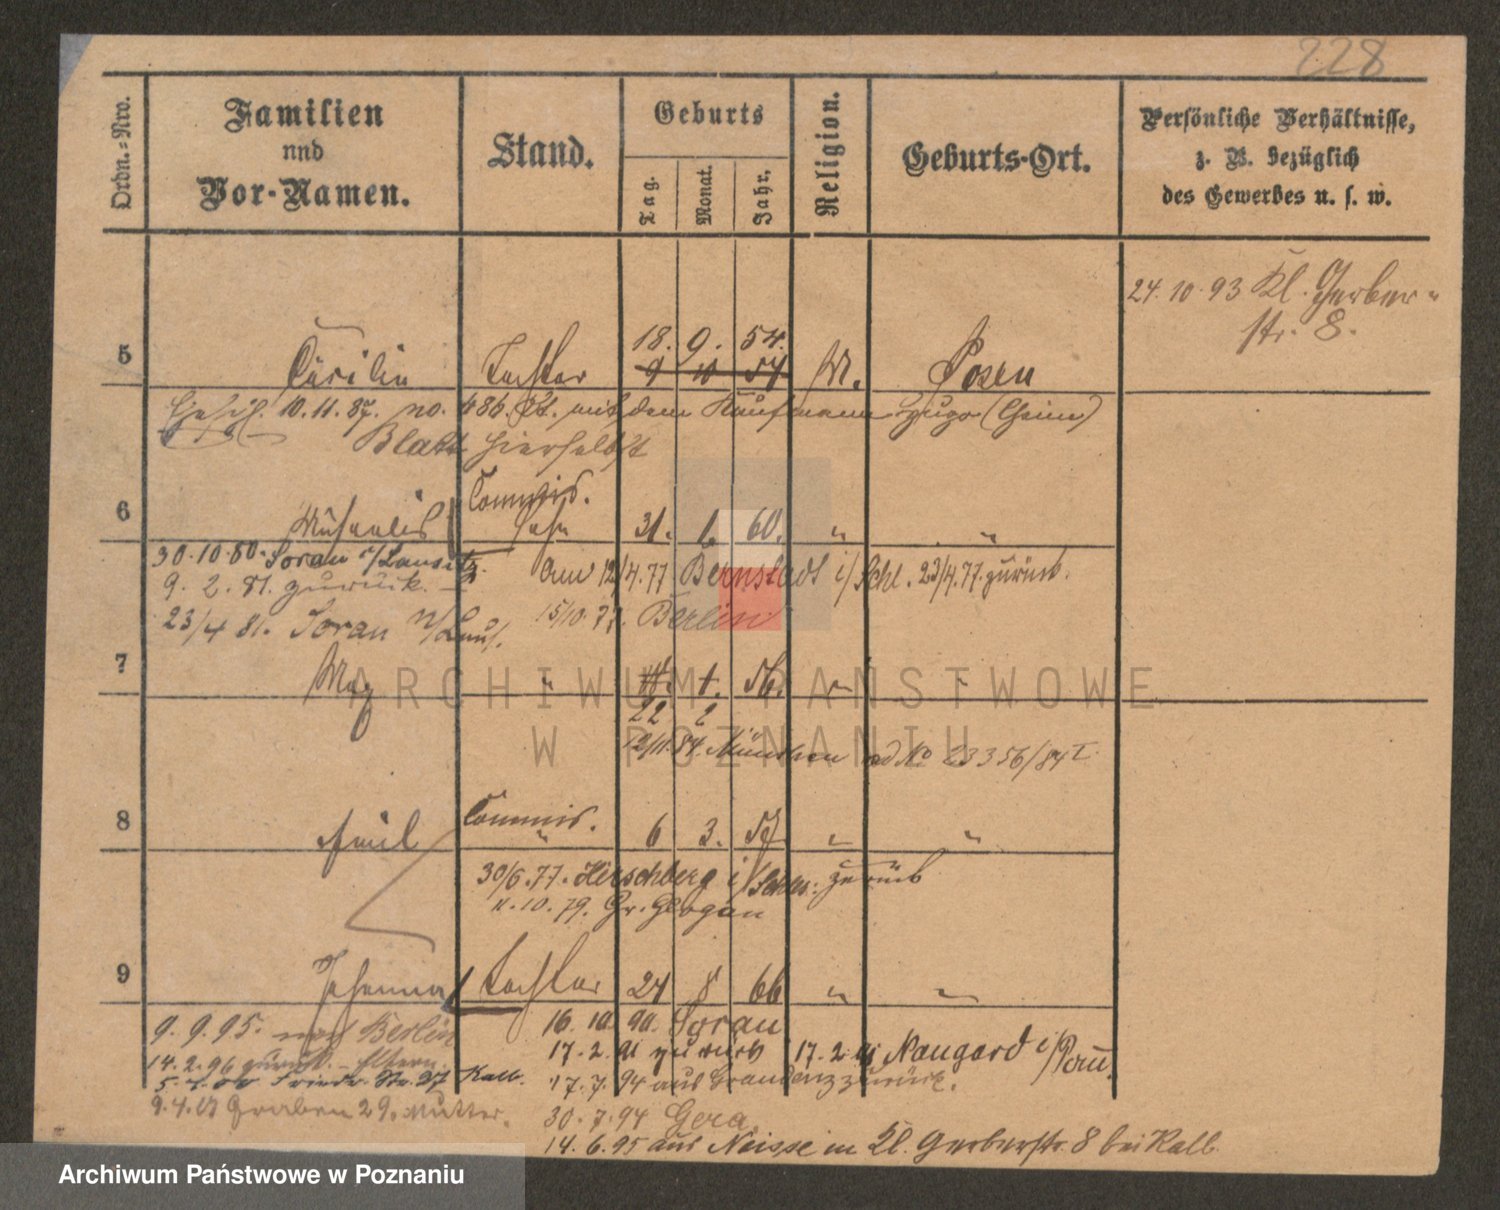 228
Ordn.-Nro.
Familien
und
Vor-Namen.
Stand.
Geburts
Tag.
Monat.
Jahr.
Religion.
Geburts-Ort.
Persönliche Verhältnisse,
z. B. bezüglich
des Gewerbes u. s. w.
24.10.93 Kl. Gerber-
str. 8.
18. 9. 54.
5 Cäcilie Tochter 9 10 54 M. Posen
10.11.87. no. 486. mit dem Kaufmann Hugo (Chaim)
Blatt hierselbst
Commis.
6 Michaelis Sohn 31. 1. 60. " "
30.10.80. Sorau n/Lausitz. Am 12/4.77 Bernstadt i/Schl. 23/4.77. zurück.
9. 2. 81. zurück.
15/10.77. Berlin
23/4 81. Sorau n/Laus.
7 Max " 1. 56. " "
22 2
12/11.84. München ad No 23356/84 I
Commis.
8 Emil " 6 3. 57 " "
30/6.77. Hirschberg i/Schles. zurück
11.10.79. Gr. Glogau
9 Johanna Tochter 24 8 66 " "
9. 9. 95. nach Berlin
16. 10. 90. Sorau
14.2.96 zurück. - Eltern.
17.2.91 zurück 17.2.91 Naugard i/Pom.
Friedr. Str. 27 Kalb.
17.7.94 aus Graudenz zurück.
9.4.01 Graben 29. Mutter.
30.7.94 Gera.
14.6.95 aus Neisse in Kl. Gerberstr. 8 bei Kalb
ARCHIWUM PAŃSTWOWE
W POZNANIU
Archiwum Państwowe w Poznaniu